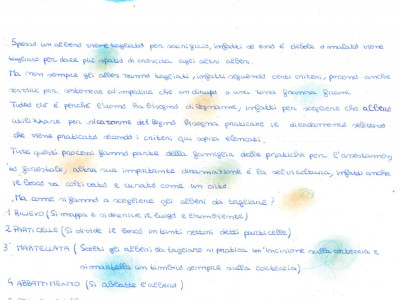 . Spesso un albero viene tagliato per sacrificio, infatti se esso è debole o malato viene
tagliato per dare più spazio di crescita agli altri alberi.
Ma non sempre gli alberi vanno tagliati, infatti seguendo certi criteri, possono anche
servire per sostenere ed impedire che un dirupo o una terra frani.
Tutto ciò è perché l'uomo ha bisogno di legname, infatti per scegliere che albero
utilizzare per ricavare del legno bisogna praticare il diradamento selettivo
che viene praticato secondo i criteri qui sopra elencati.
Tutti questi processi fanno parte della famiglia delle pratiche per l'
forestale, altra sua importante diramazione è la selvicoltura, infatti anche
i boschi coltivati e curati come un orto.
. Ma come si fanno a scegliere gli alberi da tagliare?
1 RILIEVO (Si mappa e si descrive il luogo e l'ambiente)
2 PARTICELLE (Si divide il bosco in tanti settori detti particelle)
3° MARTELLATA (Scelti gli alberi da tagliare si pratica un'incisione sulla corteccia e
si martella un timbro sempre sulla corteccia)
4 ABBATTIMENTO (Si abbatte l'albero)